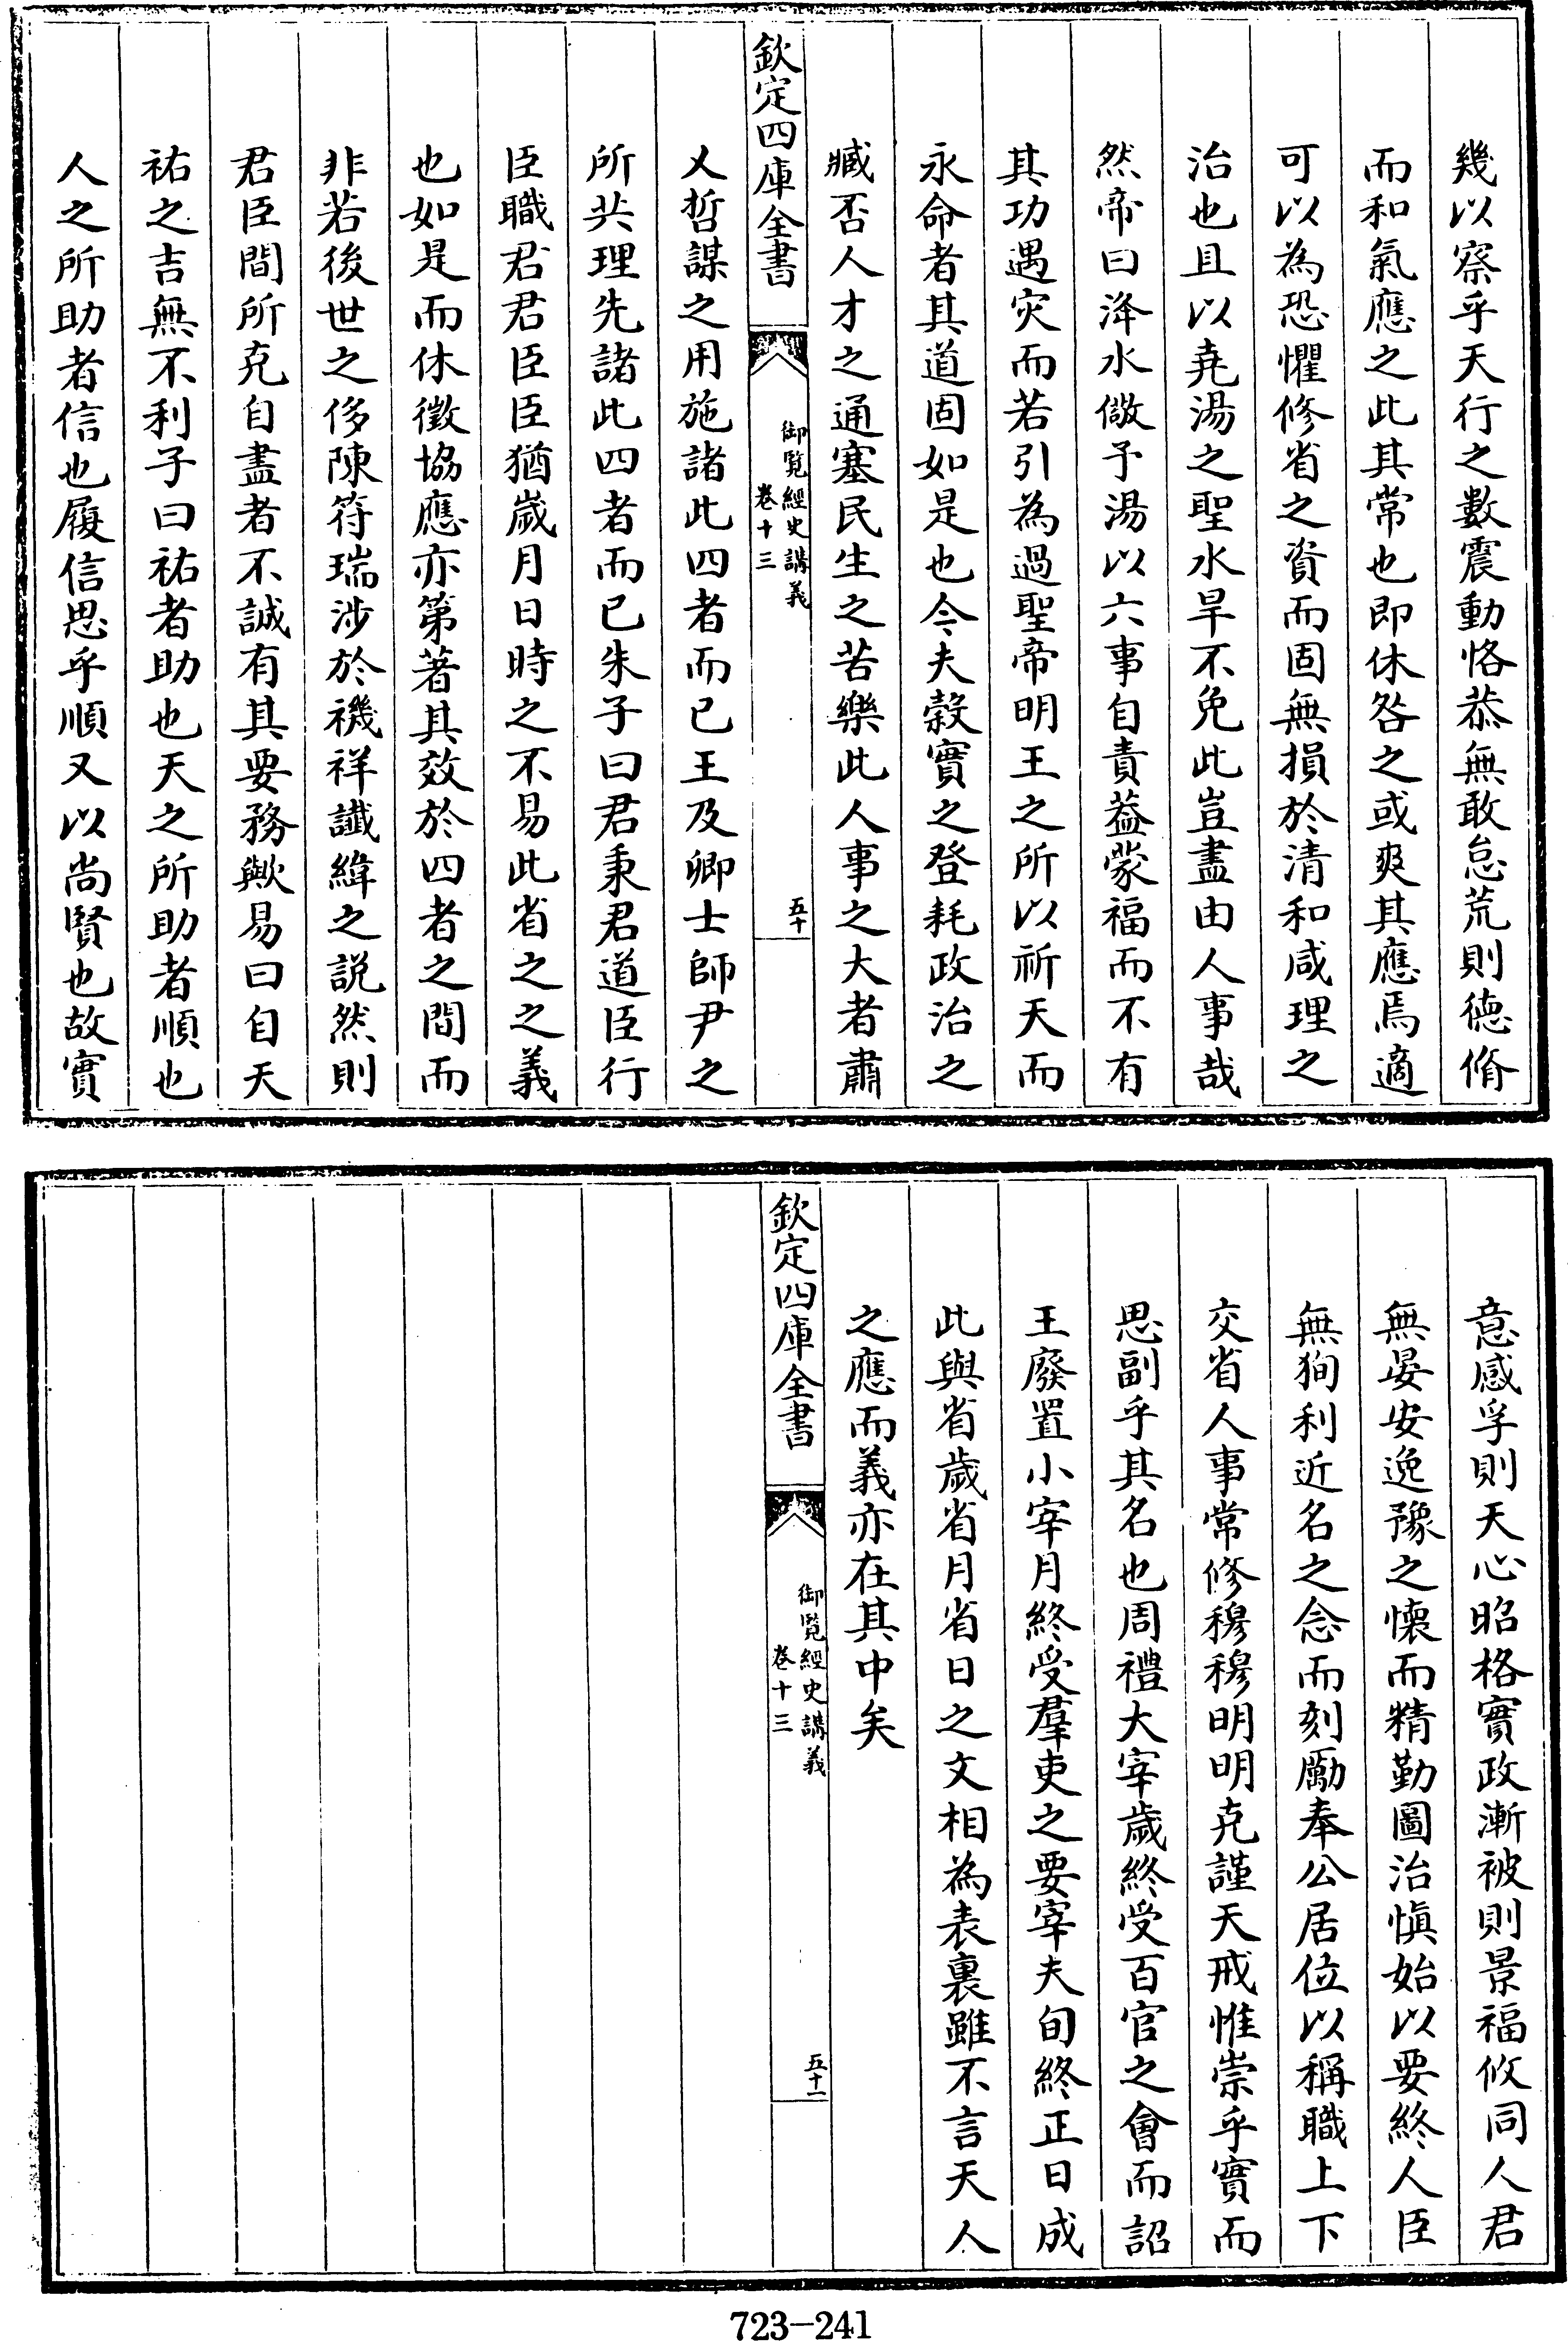 幾以察乎天行之數震動恪恭無敢怠荒則德脩
而和氣應之此其常也即休咎之或爽其應焉適
可以為恐懼修省之資而固無損於清和咸理之
治也且以堯湯之聖水旱不免此豈盡由人事哉
然帝曰洚水儆予湯以六事自責葢蒙福而不有
其功遇灾而若引為過聖帝明王之所以祈天而
永命者其道固如是也今夫穀實之登耗政治之
臧否人才之通塞民生之苦樂此人事之大者肅
欽定四庫全書
御覽經史講義
卷十三
五十
乂哲謀之用施諸此四者而已王及卿士師尹之
所共理先諸此四者而已朱子曰君秉君道臣行
臣職君君臣臣猶嵗月日時之不易此省之之義
也如是而休徵協應亦第著其效於四者之間而
非若後世之侈陳符瑞涉於禨祥讖緯之説然則
君臣間所克自盡者不誠有其要務歟易曰自天
祐之吉無不利子曰祐者助也天之所助者順也
人之所助者信也履信思乎順又以尚賢也故實
意感孚則天心昭格實政漸被則景福攸同人君
無晏安逸豫之懷而精勤圖治慎始以要終人臣
無狥利近名之念而刻勵奉公居位以稱職上下
交省人事常修穆穆明明克謹天戒惟崇乎實而
思副乎其名也周禮大宰歲終受百官之會而詔
王廢置小宰月終受羣吏之要宰夫旬終正日成
此與省歲省月省日之文相為表裏雖不言天人
之應而義亦在其中矣
欽定四庫全書
御覽經史講義
卷十三
五十一
723-241